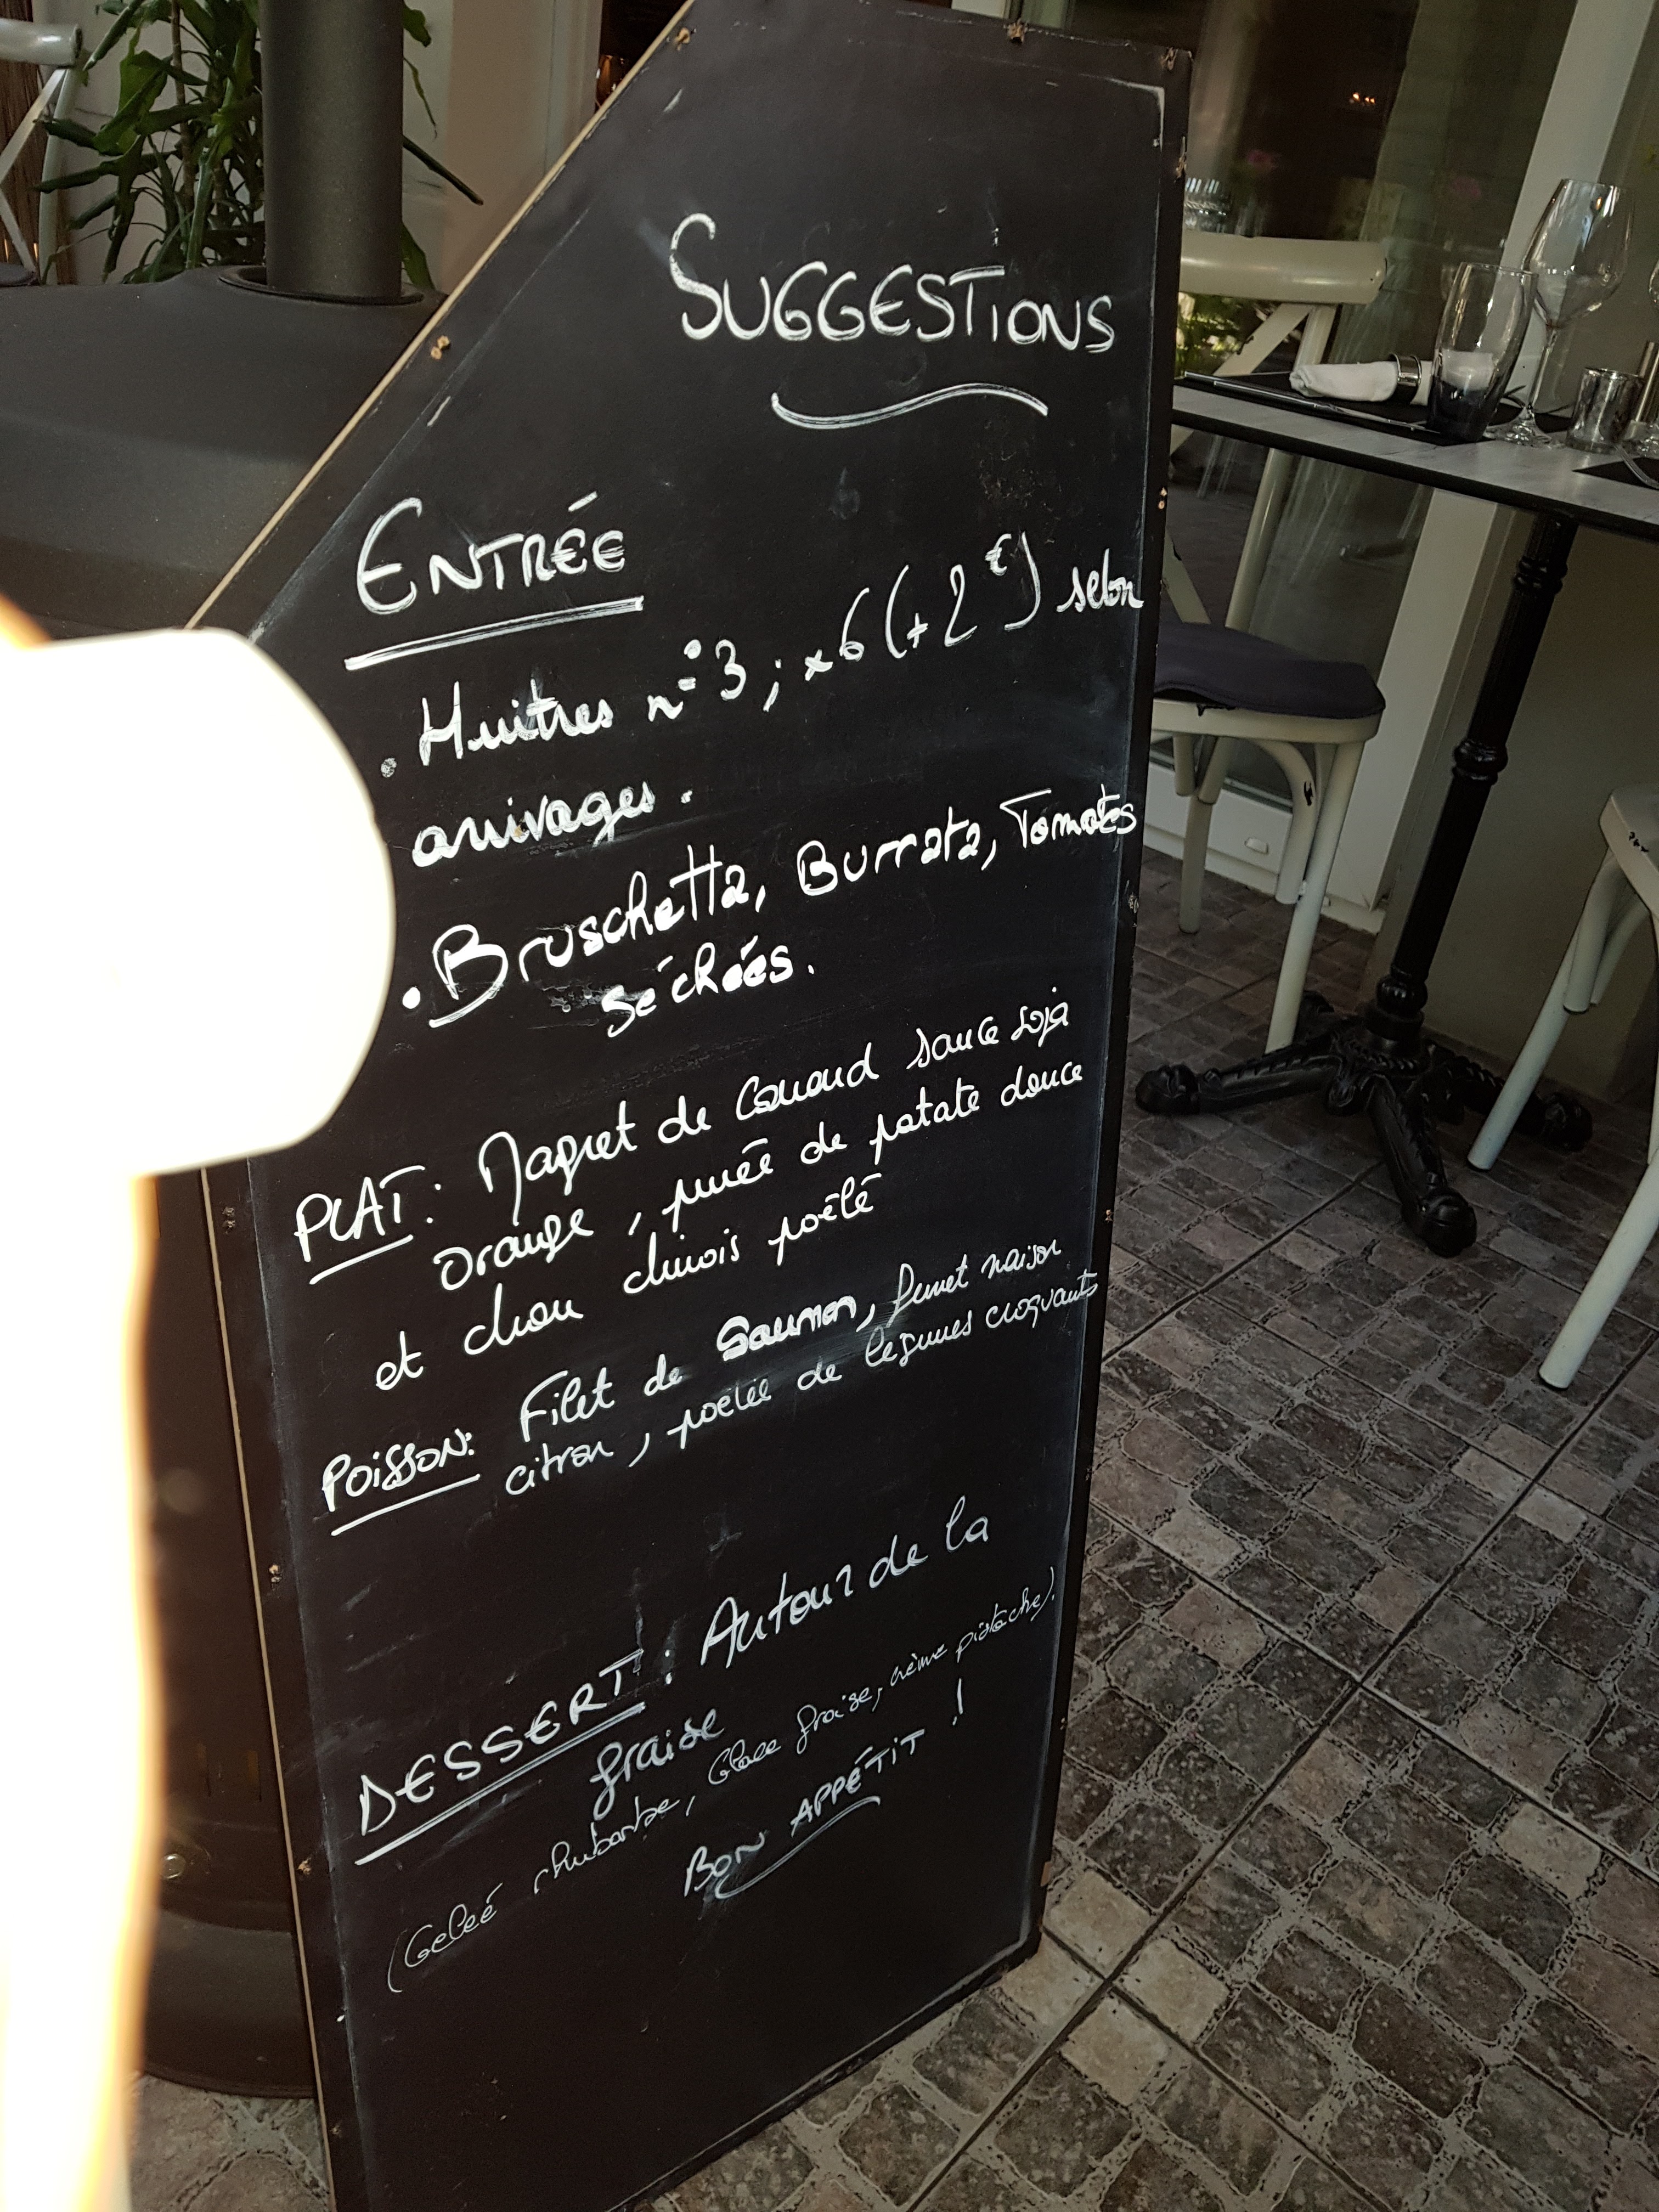 SUGGESTIONS
ENTRÉE
. Huitres n° 3 ; x6 (+2€) selon
arrivages .
. Bruschetta, Burrata, Tomates
séchées .
PLAT : Magret de Canard sauce soja
orange , purée de patate douce
et chou chinois poêlé
POISSON: Filet de Saumon, fumet maison
citron , poêlée de légumes croquants
DESSERT : Autour de la
fraise
(Geleé rhubarbe, Glace fraise, crème pistache)
BON APPÉTIT !